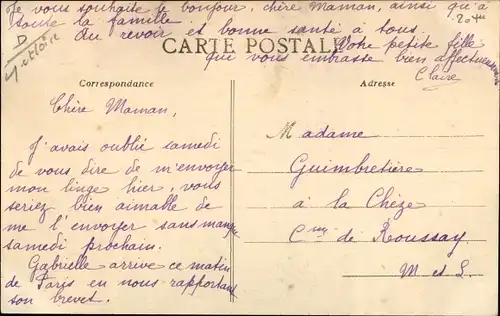 Je vous souhaite le bonjour, chère Maman, ainsi qu'à
toute la famille.
Au revoir et bonne santé à tous.
Votre petite fille
qui vous embrasse bien affectueusement
Claire
CARTE POSTALE
Correspondance
Adresse
Chère Maman,
J'avais oublié samedi
de vous dire de m'envoyer
mon linge hier, vous
seriez bien aimable de
me l'envoyer sans manque
samedi prochain.
Gabrielle arrive ce matin
de Paris en nous rapportant
son brevet.
Madame
Guimbretière
à la Chèze
Cne de Roussay
M et L.